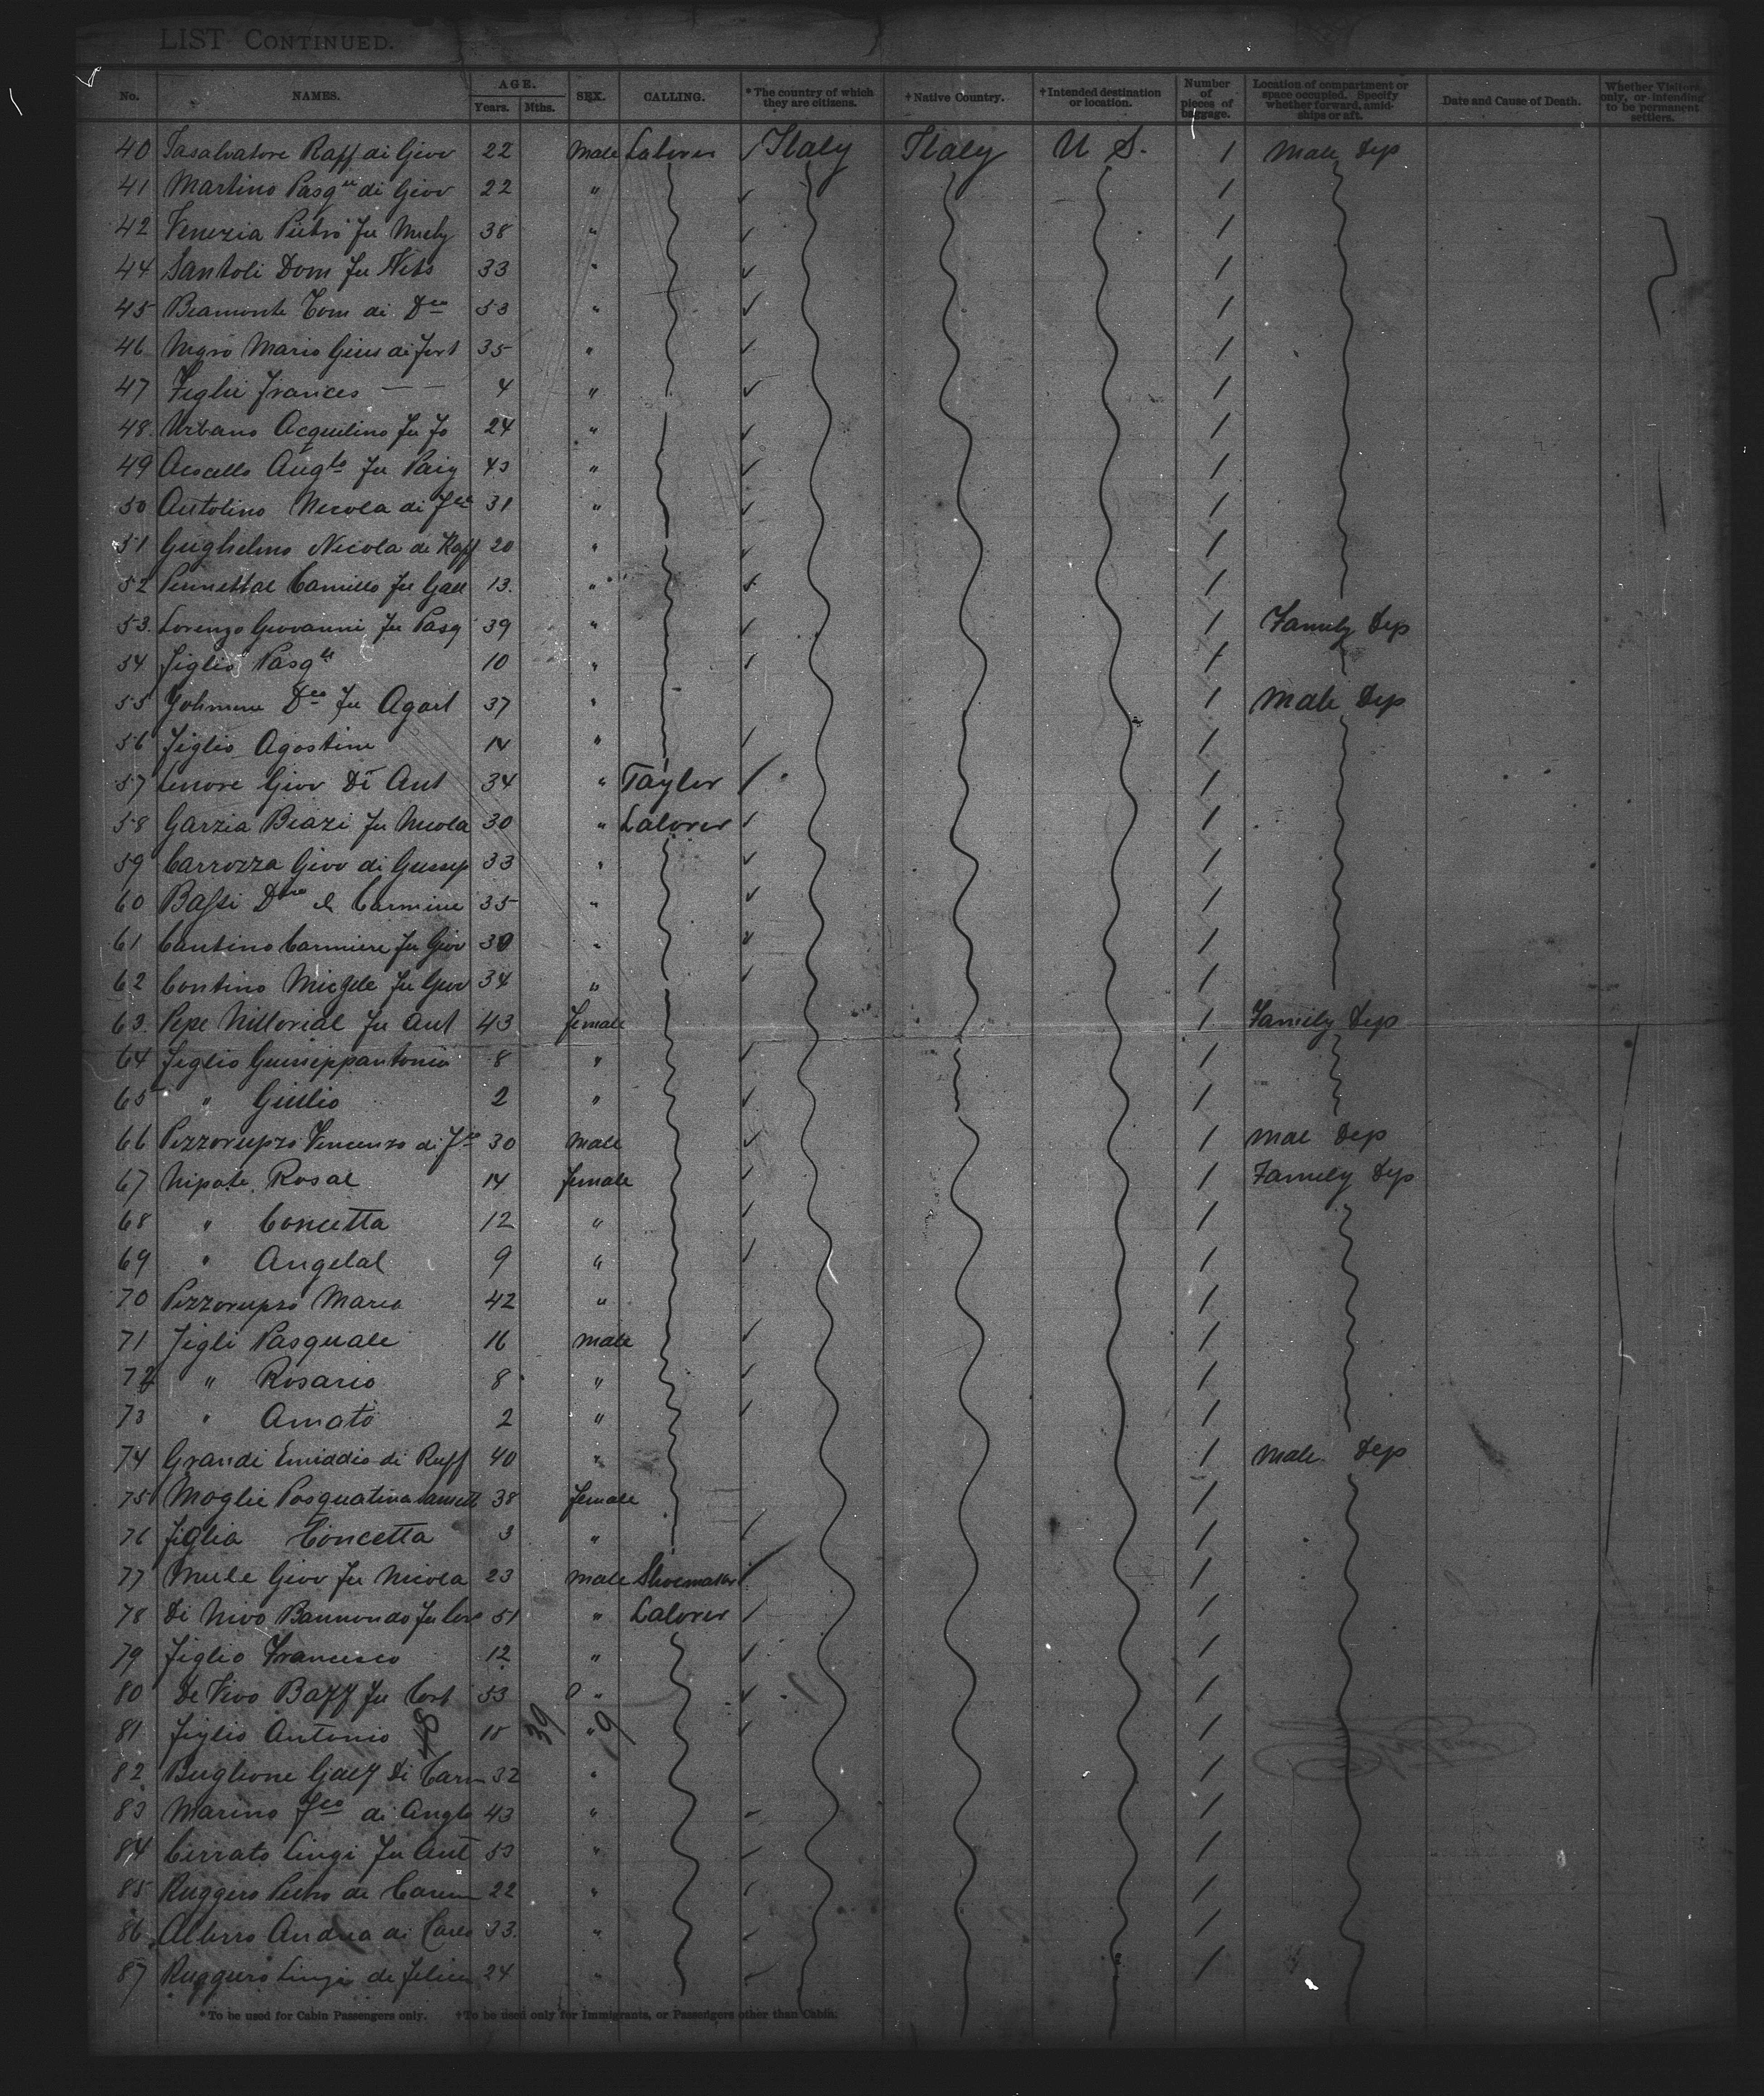 LIST CONTINUED.
No. NAMES. AGE. Years. Mths. SEX. CALLING. *The country of which they are citizens. †Native Country. †Intended destination or location. Number of pieces of baggage. Location of compartment or space occupied. Specify whether forward, amidships or aft. Date and Cause of Death. Whether Visitors only, or intending to be permanent settlers.
40 Raff di Giov 22 Male Laborer ✓ Italy Italy U S. 1 Male Dep
41 Martino Pasq le di Giov 22 " ✓ 1
42 Venezia Pietro fu 38 " ✓ 1
44 Santoli Dom fu 33 " ✓ 1
45 Beamonte Tom di Dco 53 " ✓ 1
46 Nigro Maria Gius di Fort 35 " ✓ 1
47 Figlie Frances — — 4 " ✓ 1
48. Urbano Acquilino fu Jo 24 " ✓ 1
49 Augto fu 43 " ✓ 1
50 Antolino Nicola di 31 " ✓ 1
51 Guglielmo Nicola di Raff 20 " ✓ 1
52 Camillo fu Gae 13. " ✓ 1
53. Lorenzo Giovanni fu Pasq 39 " ✓ 1 Family Dep
54 figlio Pasq le 10 " ✓ 1
55 Dco fu Agost 37 " 1 Male Dep
56 figlio Agostino 14 " ✓ 1
57 Lenore Giov Di Ant 34 " Taylor ✓ 1
58 Garzia Biazi fu Nicola 30 " Laborer ✓ 1
59 Carrozza Giov di Giusep 33 " ✓ 1
60 Bassi 35 " ✓ 1
61 Cantino Carmine fu Giov 30 " ✓ 1
62 Contino Michele fu Giov 34 " ✓ 1
63. Pepe fu Ant 43 female 1 Family Dep
64 figlio Guiseppantonio 8 " ✓ 1
65 " Giulio 2 " ✓ 1
66 Pizzorupso Vincenzo di 30 Male ✓ 1 Mal Dep
67 Nipote Rosal 14 female ✓ 1 Family Dep
68 " Concetta 12 " ✓ 1
69 " Angelal 9 " ✓ 1
70 Pizzorupso Maria 42 " 1
71 figli Pasquale 16 male ✓ 1
72 " Rosario 8 " ✓ 1
73 " Amato 2 " ✓ 1
74 Grandi Emiddio di Raff 40 " 1 Male Dep
75 Moglie Pasquatina 38 female 1
76 figlia Concetta 3 " ✓ 1
77 Mule Giov fu Nicola 23 male Shoemaker ✓ 1
78 Di Nivo fu 51 " Laborer ✓ 1
79 figlio Francesco 12 " ✓ 1
80 De Vivo Baff fu 53 " ✓ 1
81 figlio Antonio 18 39 " 9 ✓ 1
82 Buglione Gaey Di Carm 32 " 1
83 Marino Fco di Anglo 43 " ✓ 1
84 Cirrato Lingi fu Ant 53 " ✓ 1
85 Ruggero Pietro di 22 " ✓ 1
86 Andrea di Carlo 33. " ✓ 1
87 Ruggero Lingi de 24 " ✓ 1
*To be used for Cabin Passengers only. †To be used only for Immigrants, or Passengers other than Cabin.